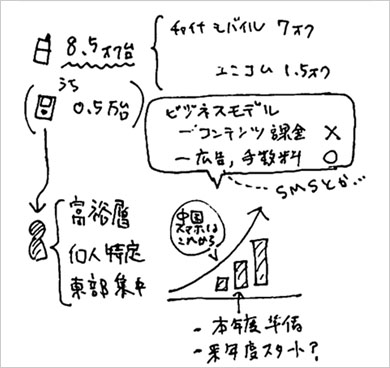 8.5オク台
チャイナモバイル 7オク
ユニコム 1.5オク
うち
0.5万台
ビジネスモデル
－コンテンツ課金 ×
－広告,手数料 ○
SMSとか…
富裕層
個人特定
東部集中
中国
スマホは
これから
- 本年度準備
- 来年度スタート？